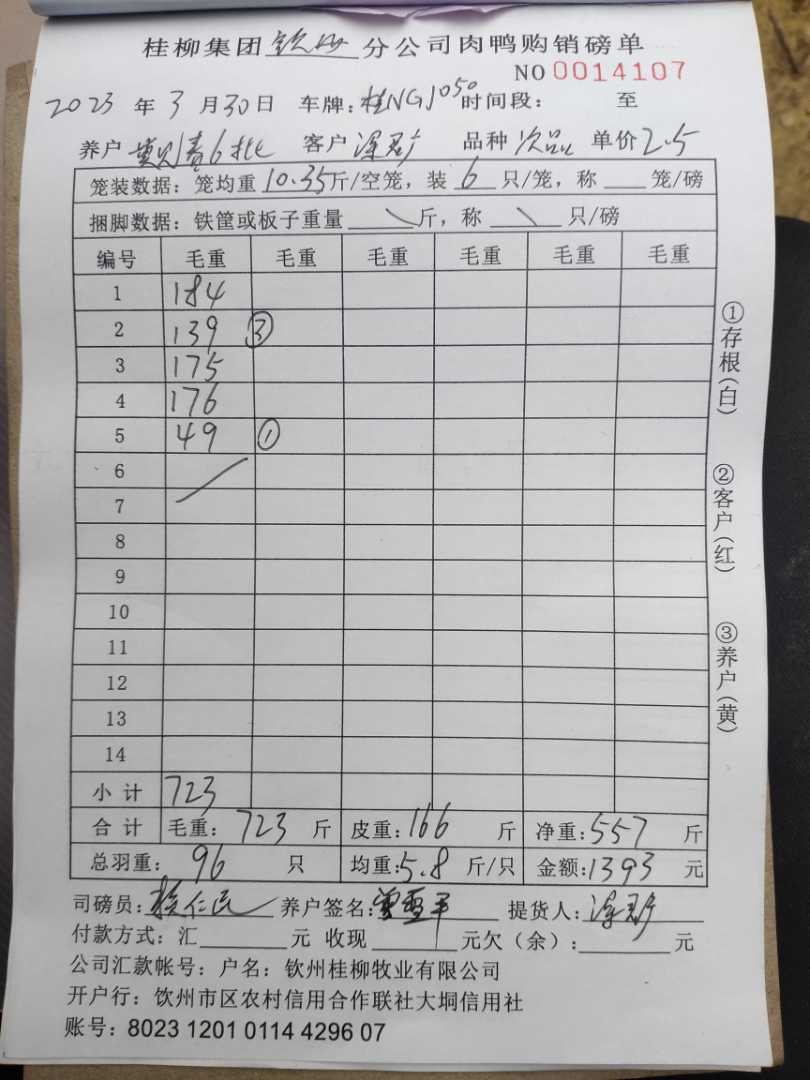 桂柳集团钦州分公司肉鸭购销磅单
NO 0014107
2023年3月30日 车牌:桂NG1050 时间段: 至
养户 6批 客户 品种 次品 单价 2.5
笼装数据:笼均重 10.35 斤/空笼,装 6 只/笼,称 笼/磅
捆脚数据:铁筐或板子重量 \ 斤,称 \ 只/磅
编号 毛重 毛重 毛重 毛重 毛重 毛重
1 184
2 139 ③
3 175
4 176
5 49 ①
6
7
8
9
10
11
12
13
14
小计 723
合计 毛重:723 斤 皮重:166 斤 净重:557 斤
总羽重: 96 只 均重:5.8 斤/只 金额:1393 元
司磅员: 仁民 养户签名: 提货人:
付款方式:汇 元 收现 元欠(余): 元
公司汇款帐号:户名:钦州桂柳牧业有限公司
开户行:钦州市区农村信用合作联社大垌信用社
账号:8023 1201 0114 4296 07
①存根(白)
②客户(红)
③养户(黄)